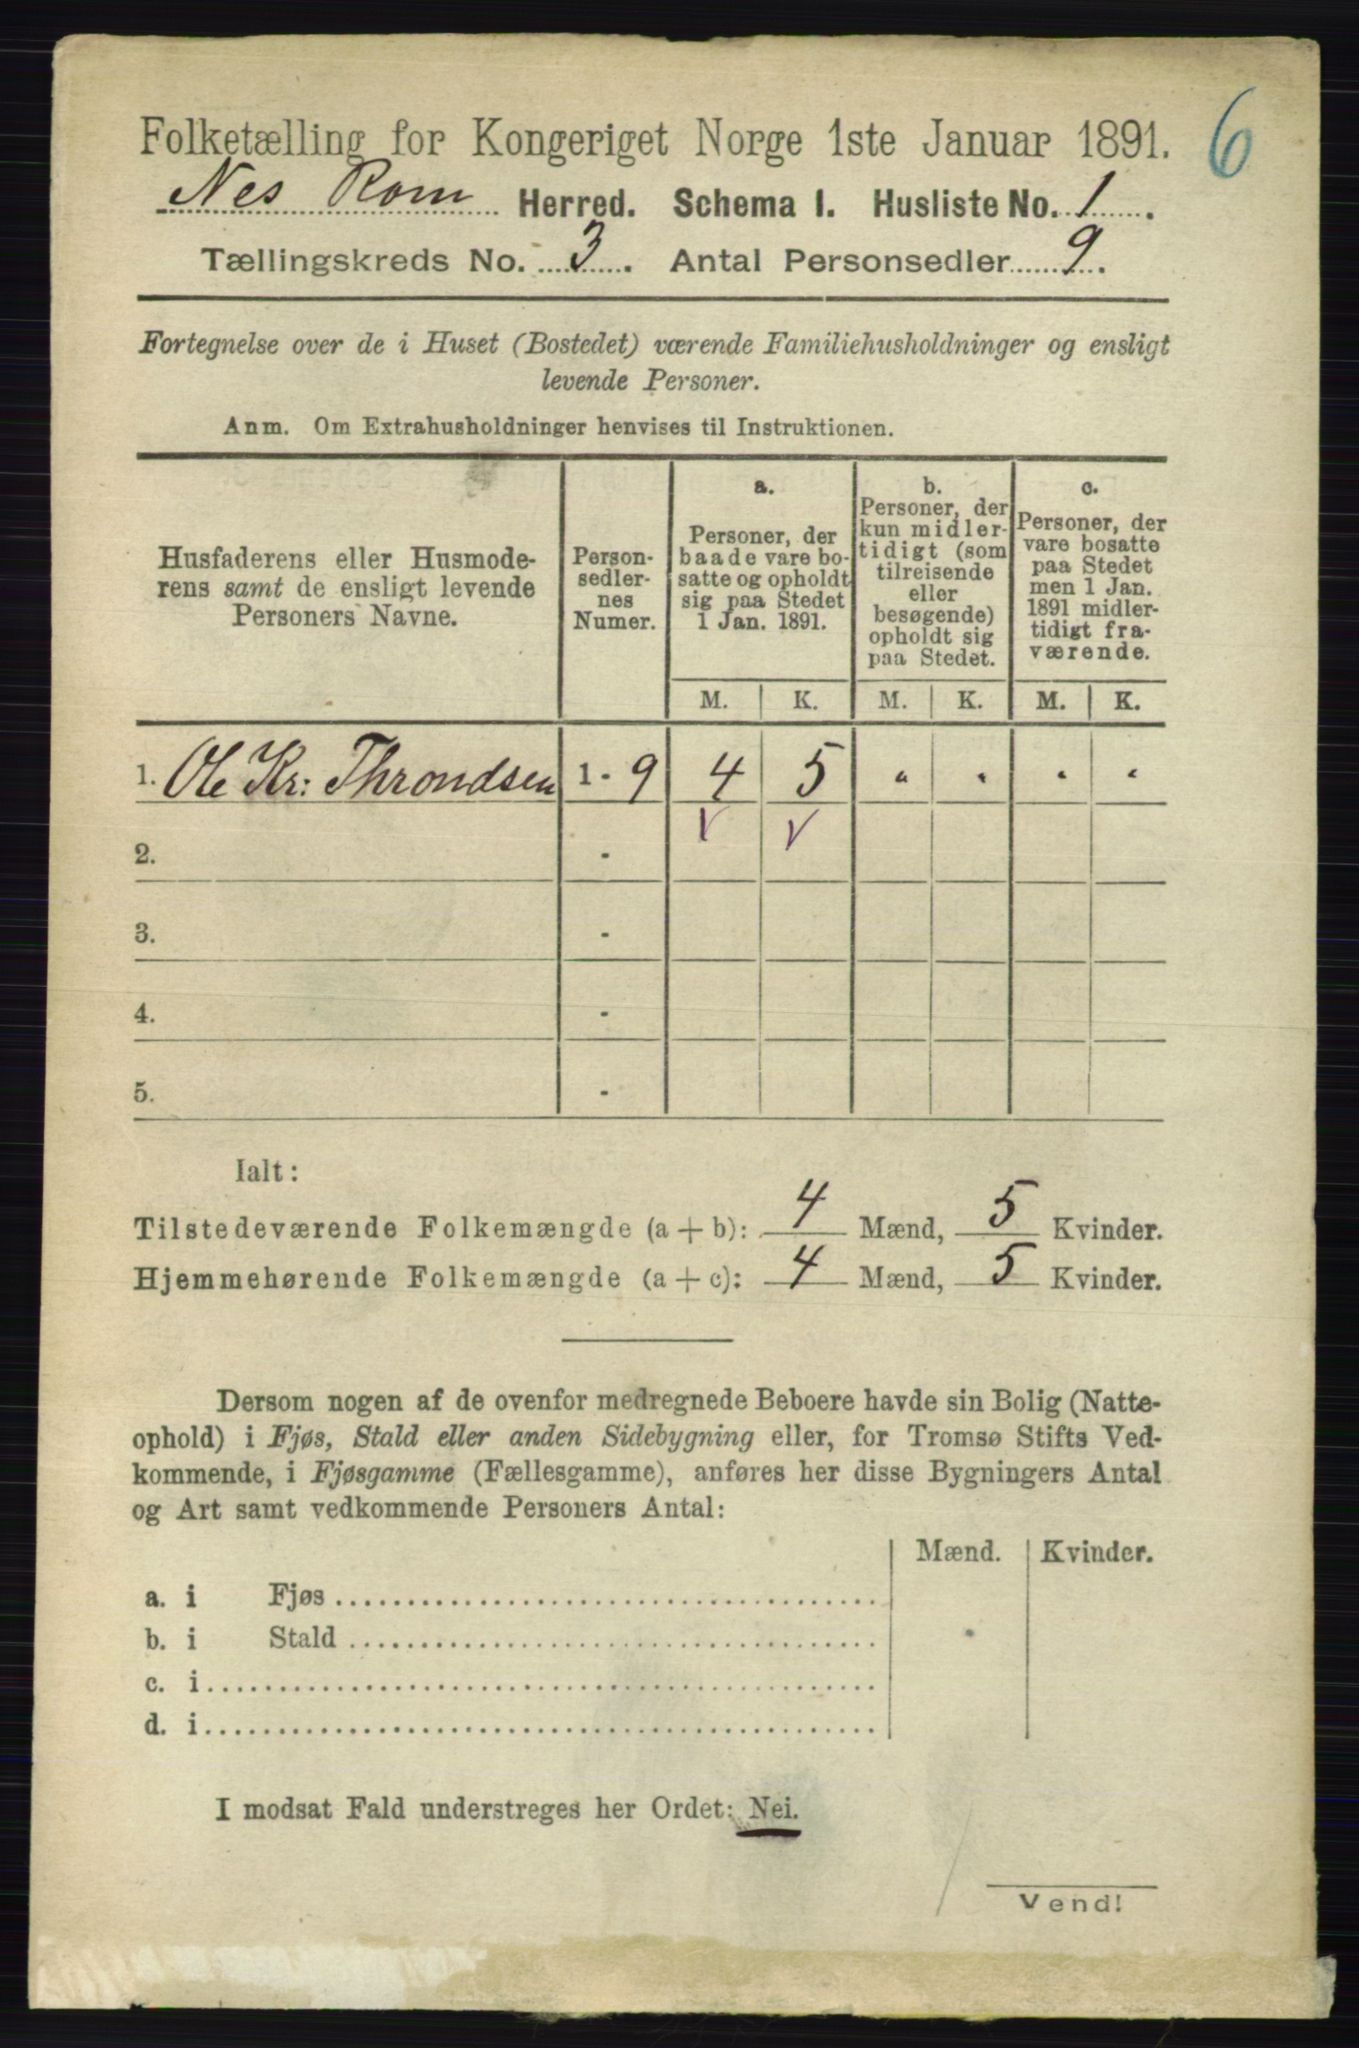 6
Folketælling for Kongeriget Norge 1ste Januar 1891.
Nes Rom Herred. Schema I. Husliste No. 1.
Tællingskreds No. 3. Antal Personsedler 9.
Fortegnelse over de i Huset (Bostedet) værende Familiehusholdninger og ensligt
levende Personer.
Anm. Om Extrahusholdninger henvises til Instruktionen.
Husfaderens eller Husmode-
rens samt de ensligt levende
Personers Navne.
Person-
sedler-
nes
Numer.
a.
Personer, der
baade vare bo-
satte og opholdt
sig paa Stedet
1 Jan. 1891.
b.
Personer, der
kun midler-
tidigt (som
tilreisende
eller
besøgende)
opholdt sig
paa Stedet.
c.
Personer, der
vare bosatte
paa Stedet
men 1 Jan.
1891 midler-
tidigt fra-
værende.
M. K. M. K. M. K.
1. Ole Kr: Throndsen 1 - 9 4 5 " " " "
2. -
3. -
4. -
5. -
Ialt:
Tilstedeværende Folkemængde (a + b): 4 Mænd, 5 Kvinder.
Hjemmehørende Folkemængde (a + c): 4 Mænd, 5 Kvinder.
Dersom nogen af de ovenfor medregnede Beboere havde sin Bolig (Natte-
ophold) i Fjøs, Stald eller anden Sidebygning eller, for Tromsø Stifts Ved-
kommende, i Fjøsgamme (Fællesgamme), anføres her disse Bygningers Antal
og Art samt vedkommende Personers Antal:
Mænd. Kvinder.
a. i Fjøs
b. i Stald
c. i
d. i
I modsat Fald understreges her Ordet: Nei.
Vend!